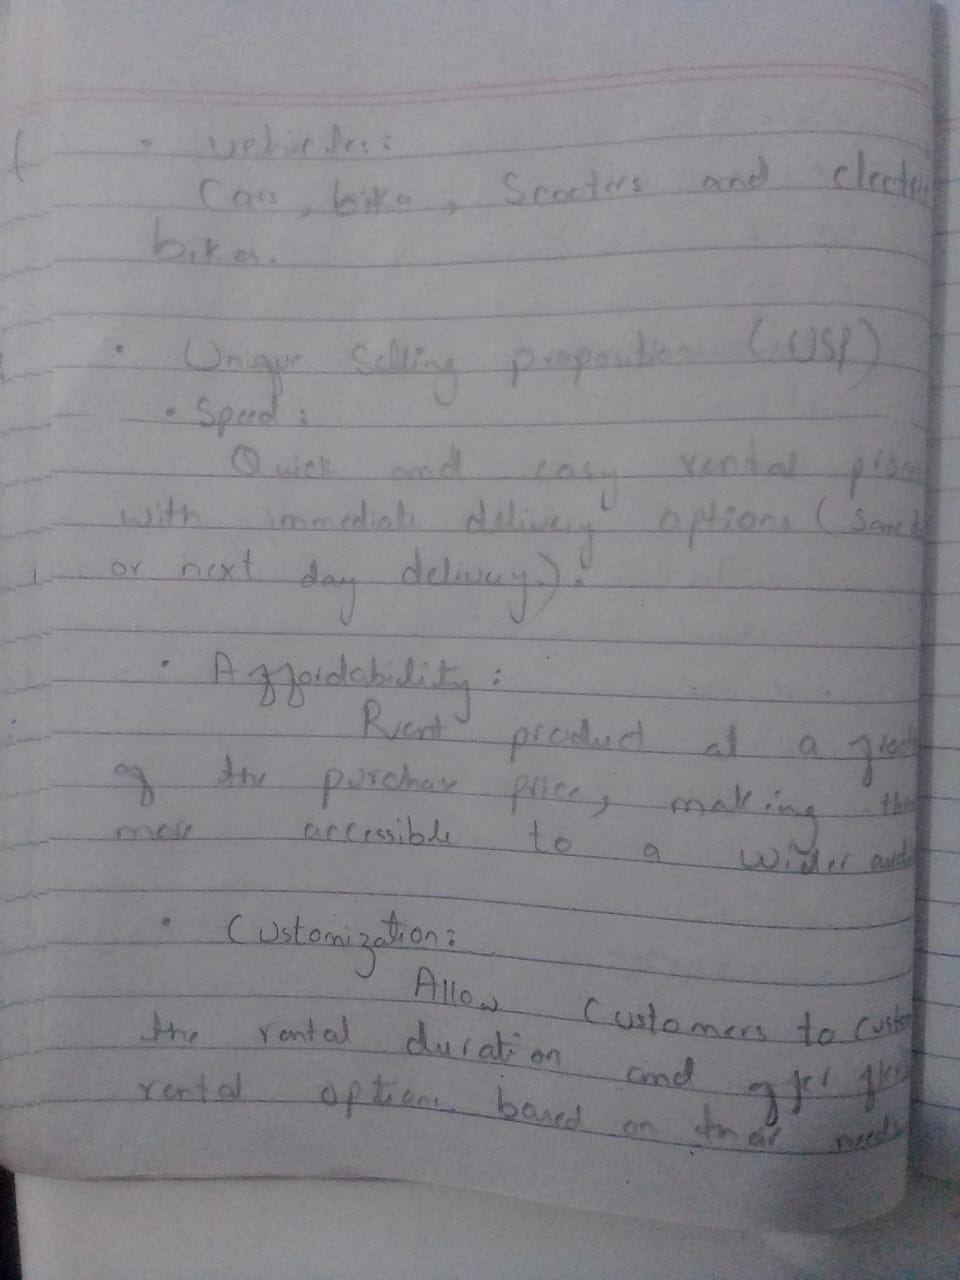 • vehicles:
Cars, bikes, Scooters and electr
bikes.
• Unique Selling proposition (USP)
• Speed:
Quick and easy rental proc
with immediate delivery options (same d
or next day delivery).
• Affordability:
Rent product at a frac
of the purchase price, making the
more accessible to a wider aud
• Customization:
Allow Customers to custo
the rental duration and offer flex
rental options based on their needs